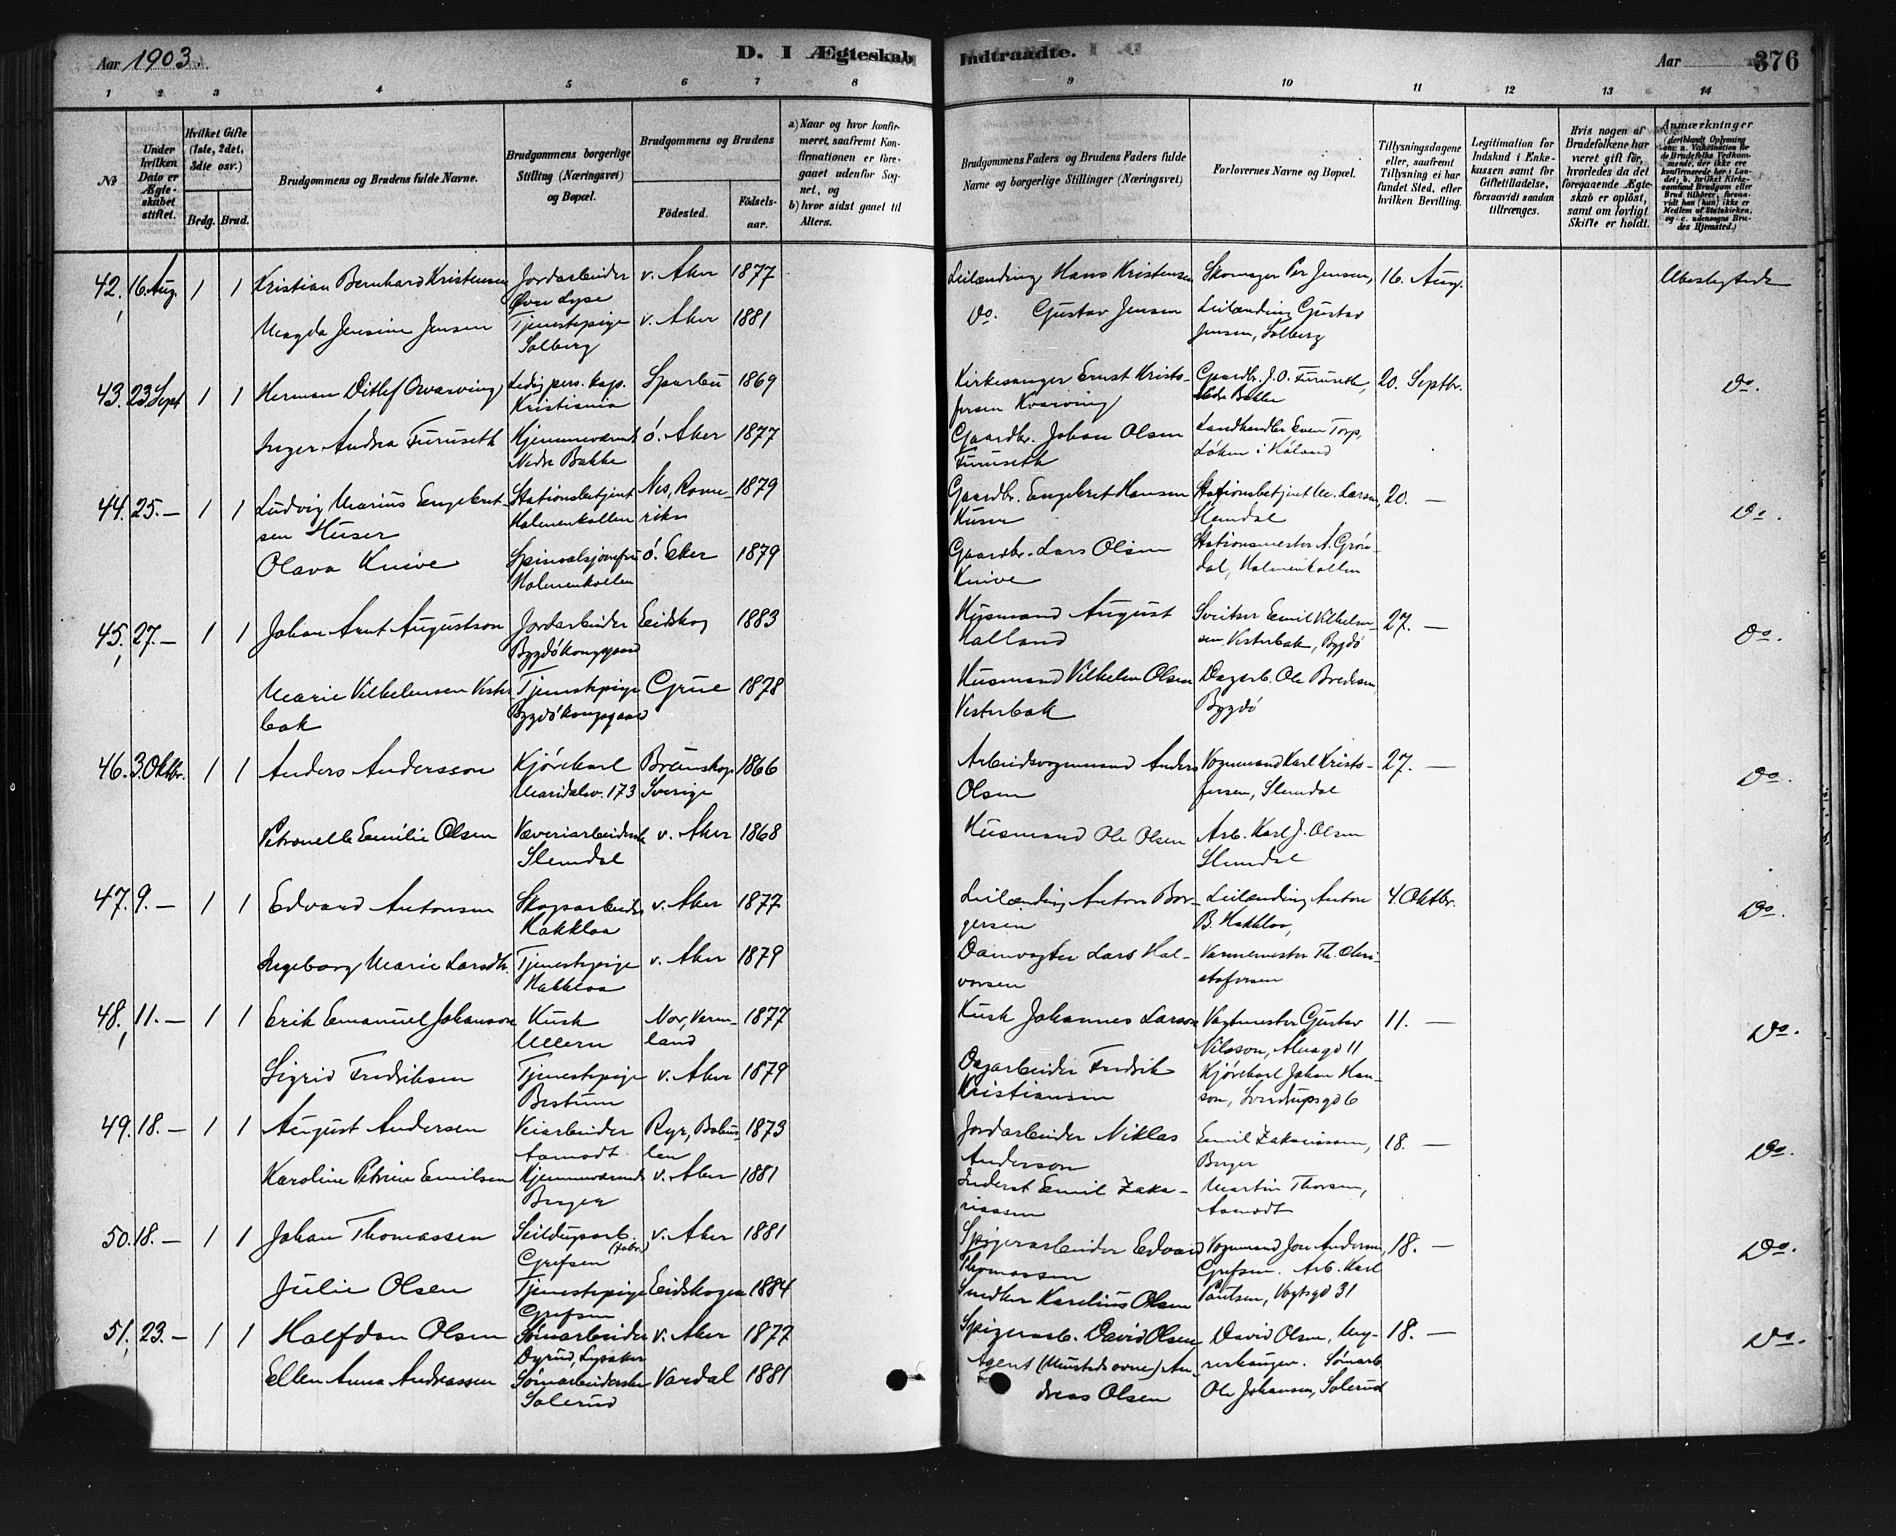 Aar 1903.
D. I Ægteskab Indtraadte.
Aar
376
1 2 3 4 5 6 7 8 9 10 11 12 13 14
No
Under hvilken Dato er Ægteskabet stiftet.
Hvilket Gifte (1ste, 2det, 3die osv.)
Brdg. Brud.
Brudgommens og Brudens fulde Navne.
Brudgommens borgerlige Stilling (Næringsvei) og Bopæl.
Brudgommens og Brudens
Fødested.
Fødselsaar.
a) Naar og hvor konfirmeret, saafremt Konfirmationen er foregaaet udenfor Sognet, og
b) hvor sidst gaaet til Alters.
Brudgommens Faders og Brudens Faders fulde Navne og borgerlige Stillinger (Næringsvei)
Forlovernes Navne og Bopæl.
Tillysningsdagene eller, saafremt Tillysning ei har fundet Sted, efter hvilken Bevilling.
Legitimation for Indskud i Enkekassen samt for Giftetilladelse, forsaavidt saadan tiltrænges.
Hvis nogen af Brudefolkene har været gift før, hvorledes da det foregaaende Ægteskab er opløst, samt om lovligt Skifte er holdt.
Anmærkninger
42. 16 Aug. 1 1 Kristian Bernhard Kristensen Jordarbeider Øvre Lyse v. Aker 1877 Leilænding Hans Kristensen Skomager Per Jensen, 16. Aug. Ubeslægtede
Magda Jensine Jensen Tjenestepige Solberg v. Aker 1881 Do. Gustav Jensen Leilænding Gustav Jensen, Solberg
43. 23 Sept 1 1 Herman Ditlef Qvarving Ledig pers. kap. Kristiania Sparbu 1869 Kirkesanger Ernst Kristofersen Kvarving Gaardbr. J. O. Furuseth, Nedre Bakke 20. Septbr. Do.
Inger Andrea Furuseth Hjemmeværende Nedre Bakke ö. Aker 1877 Gaardbr. Johan Olsen Furuseth Landhandler Even Torp, Løken i Høland
44. 25. — 1 1 Ludvig Marius Engebretsen Huser Stationsbetjent Holmenkollen Nes, Romerike 1879 Gaardbr. Engebret Hansen Huser Stationsbetjent M. Larsen, Slemdal 20. — Do.
Olava Knive Spisesalsjomfru Holmenkollen ö. Eker 1879 Gaardbr. Lars Olsen Knive Stationsmester A. Gröndal, Holmenkollen
45. 27. — 1 1 Johan Arnt Augustson Jordarbeider Bygdö kongsgaard Eidskog 1883 Husmand August Halland Sveitser Emil Vilhelmsen Vesterbak, Bygdö 27. — Do.
Marie Vilhelmsen Vesterbak Tjenestepige Bygdö kongsgaard Grue 1878 Husmand Vilhelm Olsen Vesterbak Dagarb. Ole Bredesen, Bygdö
46. 3. Oktbr. 1 1 Anders Andersson Kjörekarl Maridalsv. 173 Brunskog Sverige 1866 Arbeidsvognmand Anders Olsen Vognmand Karl Kristofersen, Slemdal 27. — Do.
Petronelle Emilie Olsen Væveriarbeiderske Slemdal v. Aker 1868 Husmand Ole Olsen Arb. Karl J. Olsen Slemdal
47. 9. — 1 1 Edvard Antonsen Skogsarbeider Hakkloa v. Aker 1877 Leilænding Anton Borgersen Leilænding Anton B. Hakkloa, 4. Oktbr. Do.
Ingeborg Marie Larsdtr. Tjenestepige Hakkloa v. Aker 1879 Damvogter Lars Halvorsen Varmemester Th. Kristofersen
48. 11. — 1 1 Erik Emanuel Johanson Kusk Ullern Nor, Vermland 1877 Kusk Johannes Larson Vagtmester Gustav Nilsson, Almagd 11 11. — Do.
Sigrid Fredriksen Tjenestepige Bestum v. Aker 1879 Dagarbeider Fredrik Kristiansen Kjörekarl Johan Hanson, Sverdrupsgd 6
49. 18. — 1 1 August Andersen Veiarbeider Aamodt Ryr, Bohuslen 1873 Jordarbeider Niklas Anderson Emil Zakariassen, Berger 18. — Do.
Karoline Petrine Emilsen Hjemmeværende Berger v. Aker 1881 Inderst Emil Zakariassen Martin Thorsen, Aamodt
50. 18. — 1 1 Johan Thomassen Seildugsarb. (fabr.) Grefsen v. Aker 1881 Spigerarbeider Edvard Thomassen Vognmand Jon Andersen, Grefsen. Arb. Karl Paulsen, Vogtsgd 31 18. — Do.
Julie Olsen Tjenestepige Grefsen Eidskogen 1884 Snedker Karelius Olsen
51. 23. — 1 1 Halfdan Olsen Sömarbeider Dyrud, Lysaker v. Aker 1877 Spigerarb. David Olsen David Olsen, Myrerhaugen. Sömarb. Ole Johansen, Solerud 18. — Do.
Ellen Anna Andreassen Sömarbeiderske Solerud Vardal 1881 Agent (Mustads ovne) Andreas Olsen